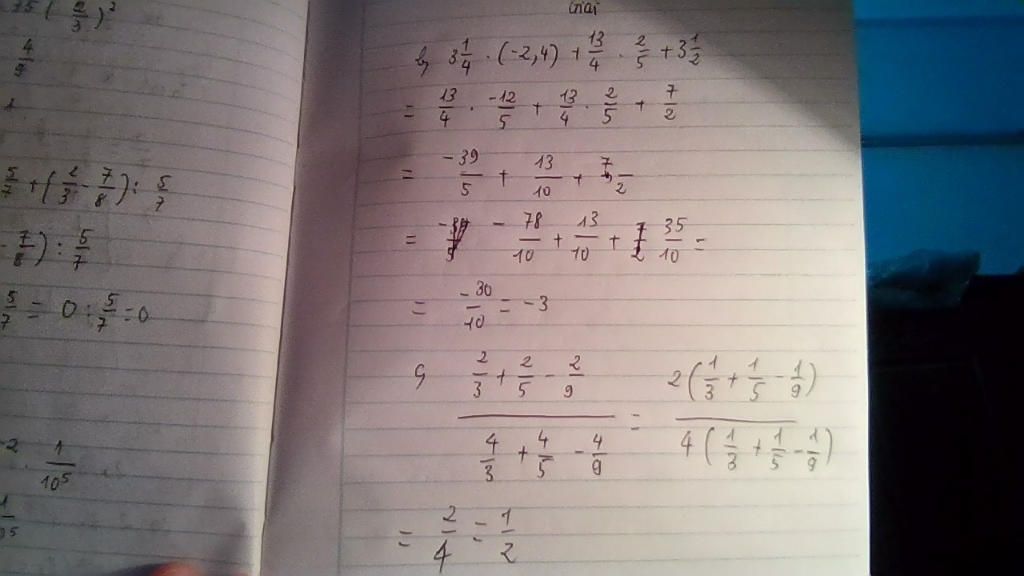 35 ( 2/3 )²
4/9
1.
5/7 + ( 2/3 - 7/8 ) : 5/7
- 7/8 ) : 5/7
5/7 = 0 : 5/7 = 0
-2 . 1/10⁵
b, 3 1/4 . (-2,4) + 13/4 . 2/5 + 3 1/2
= 13/4 . -12/5 + 13/4 . 2/5 + 7/2
= -39/5 + 13/10 + 7/2
= - 78/10 + 13/10 + 35/10 =
= -30/10 = -3
c, (2/3 + 2/5 - 2/9) / (4/3 + 4/5 - 4/9) = 2 ( 1/3 + 1/5 - 1/9 ) / 4 ( 1/3 + 1/5 - 1/9 )
= 2/4 = 1/2